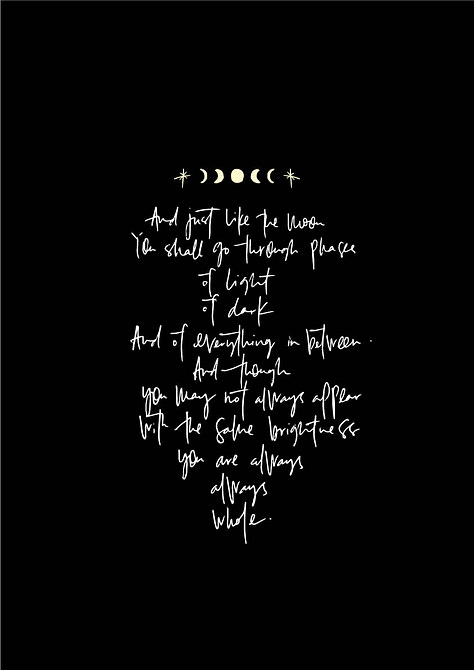 And just like the moon
You shall go through phases
of light
of dark
And of everything in between.
And though
you may not always appear
with the same brightness
you are always
always
whole.